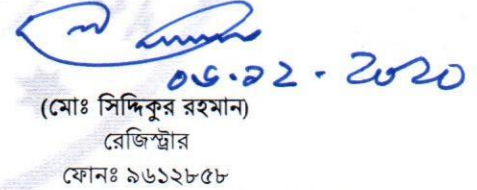 ০৬.১২.২০২০
(মোঃ সিদ্দিকুর রহমান)
রেজিস্ট্রার
ফোনঃ ৯৬১২৮৫৮